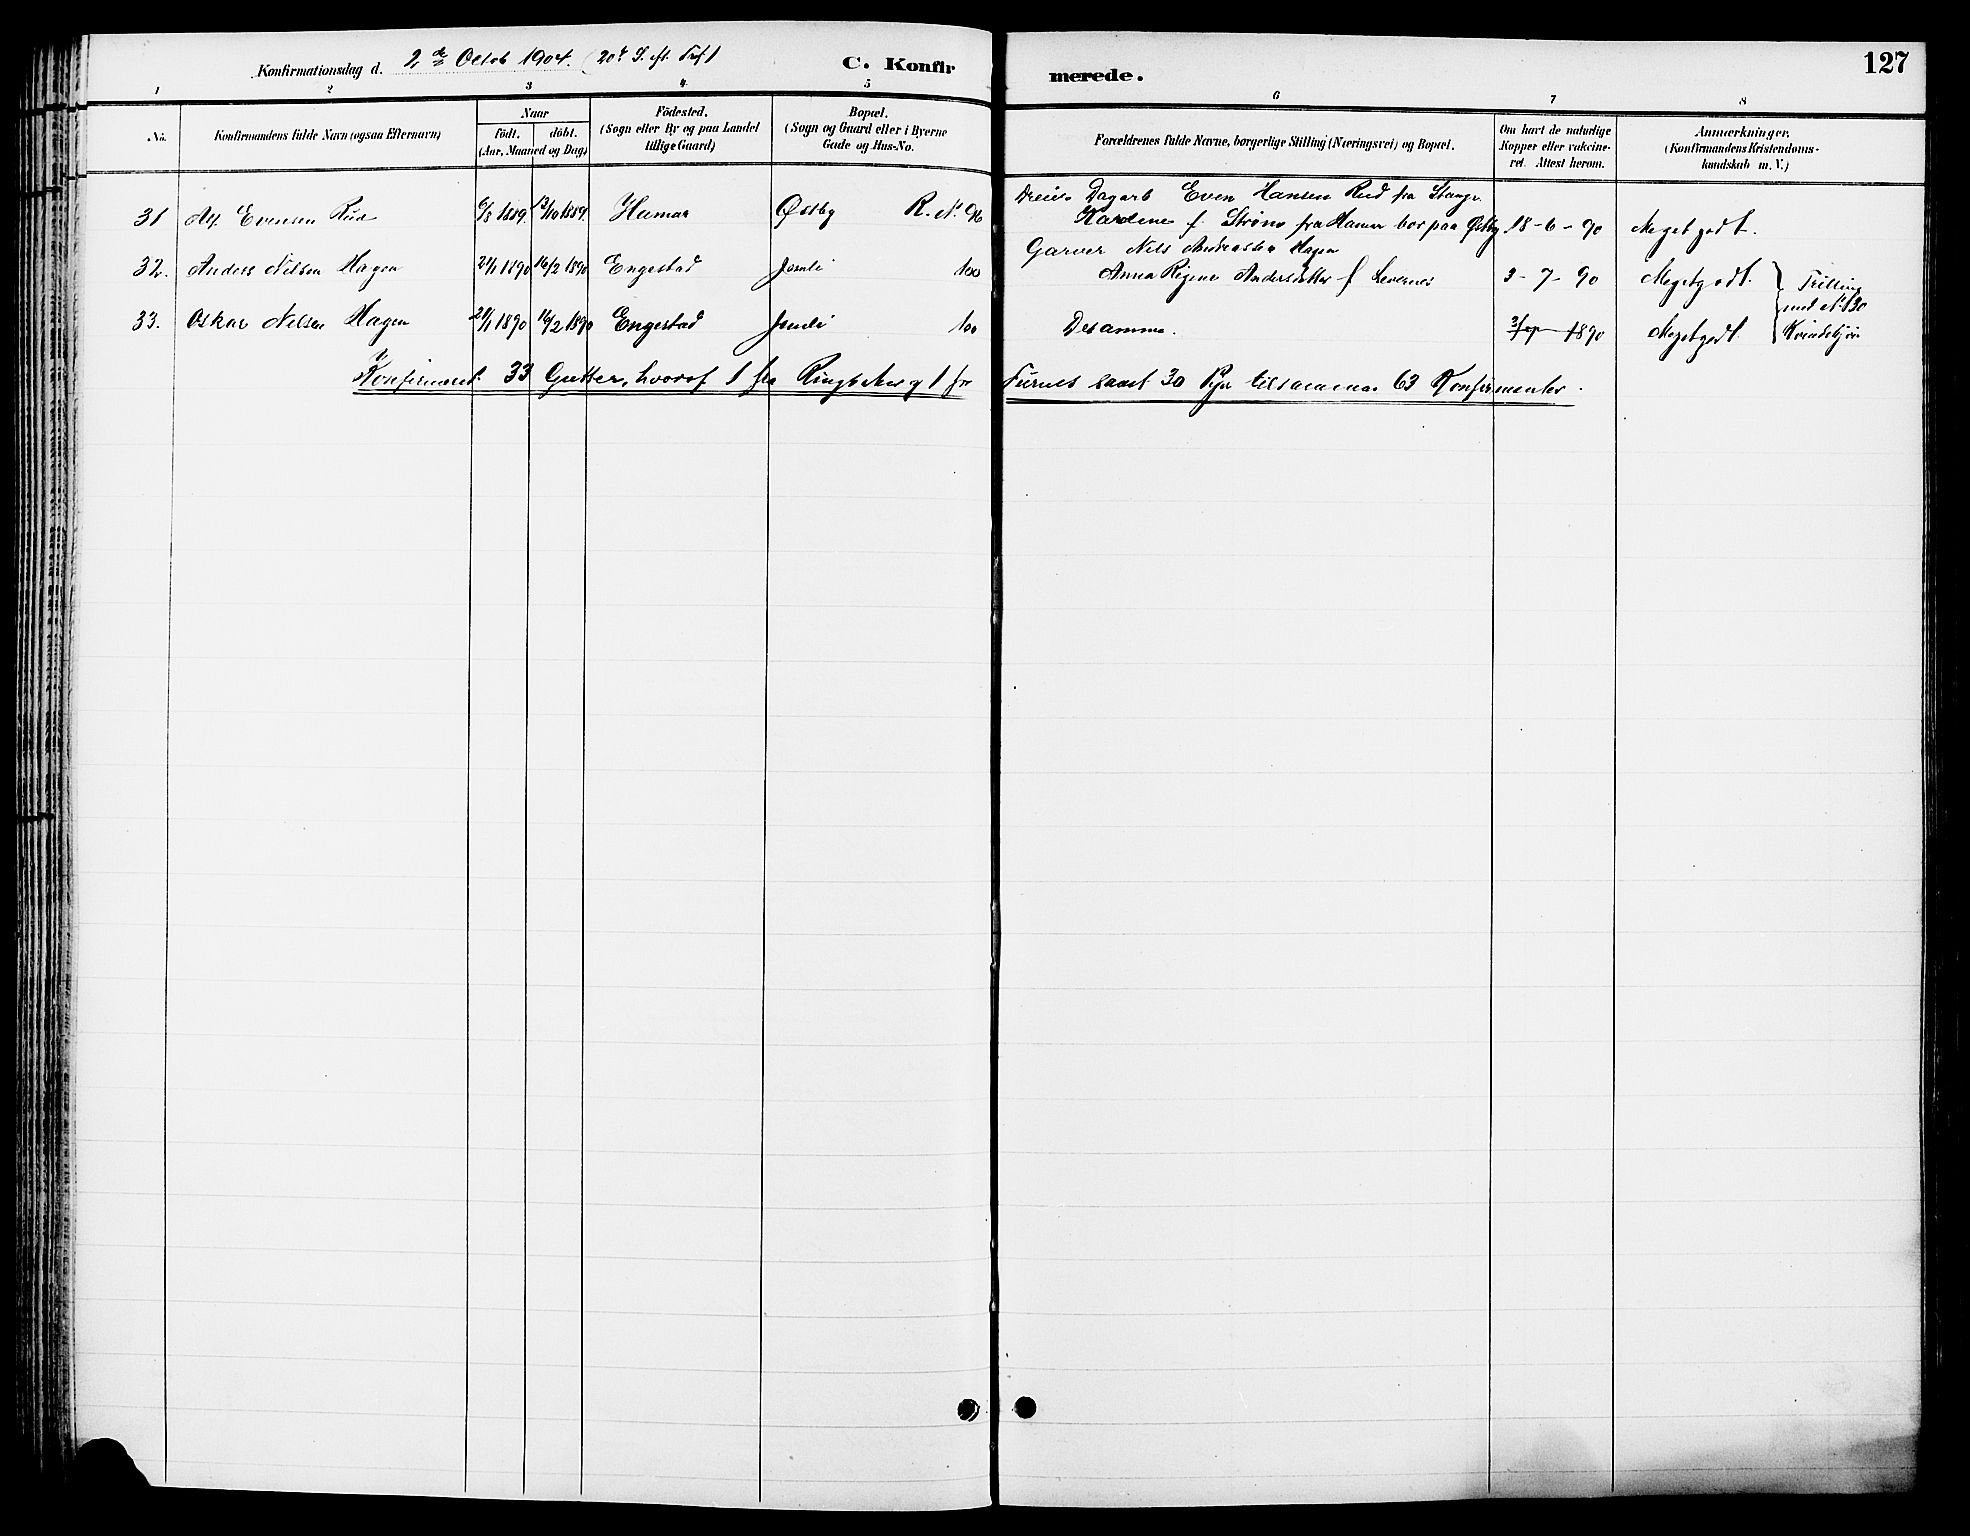 Konfirmationsdag d. 2den Octob 1904. (20de S. eft. Tref)
C. Konfirmerede.
127
1 2 3 4 5 6 7 8
No.
Konfirmandens fulde Navn (ogsaa Efternavn)
Naar
födt. döbt.
(Aar, Maaned og Dag)
Födested.
(Sogn eller By og paa Landet
tillige Gaard)
Bopæl.
(Sogn og Gaard eller i Byerne
Gade og Hus-No.
Forældrenes fulde Navne, borgerlige Stilling (Næringsvei) og Bopæl.
Om havt de naturlige
Kopper eller vaccine-
ret. Attest herom.
Anmærkninger.
(Konfirmandens Kristendoms-
kundskab m. V.)
Dagarb Even Hansen Rud fra Stange
31 Alf. Evensen Rud 6/8 1889. 13/10 1889. Hamar Østby R. No. 96 f. Strøm fra Hamar bor paa Østby 18-6-90 Meget godt.
Garver Nils Andreassen Hagen
32. Anders Nilsen Hagen 21/1 1890 16/2 1890 Engestad Jomli 100 Anna Regine Andersdatter f. 3-7-90 Meget godt. } Trilling
med No. 30
33. Oskar Nilsen Hagen 21/1 1890 16/2 1890 Engestad Jomli 100 Desamme. 3/7 1890 Meget godt. Kvindekjøn
Konfirmeret 33 Gutter, hvoraf 1 fra Ringsaker og 1 fr Furnes samt 30 Pgr tilsammen 63 Konfirmanter.